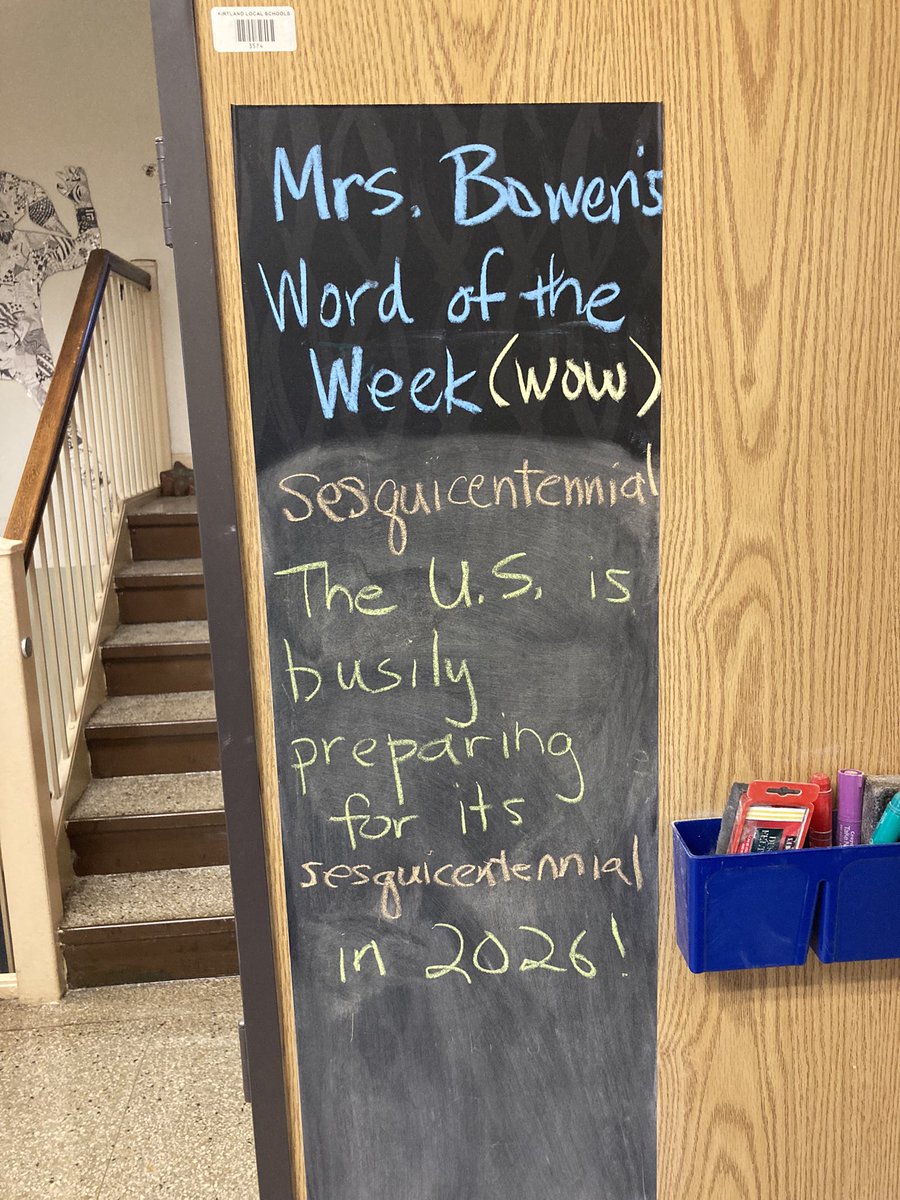 KIRTLAND LOCAL SCHOOLS
3574
Mrs. Bowen's
Word of the
Week (WOW)
sesquicentennial
The U.S. is
busily
preparing
for its
sesquicentennial
in 2026!